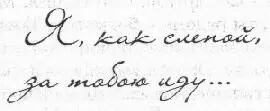 Я, как слепой,
за тобою иду...